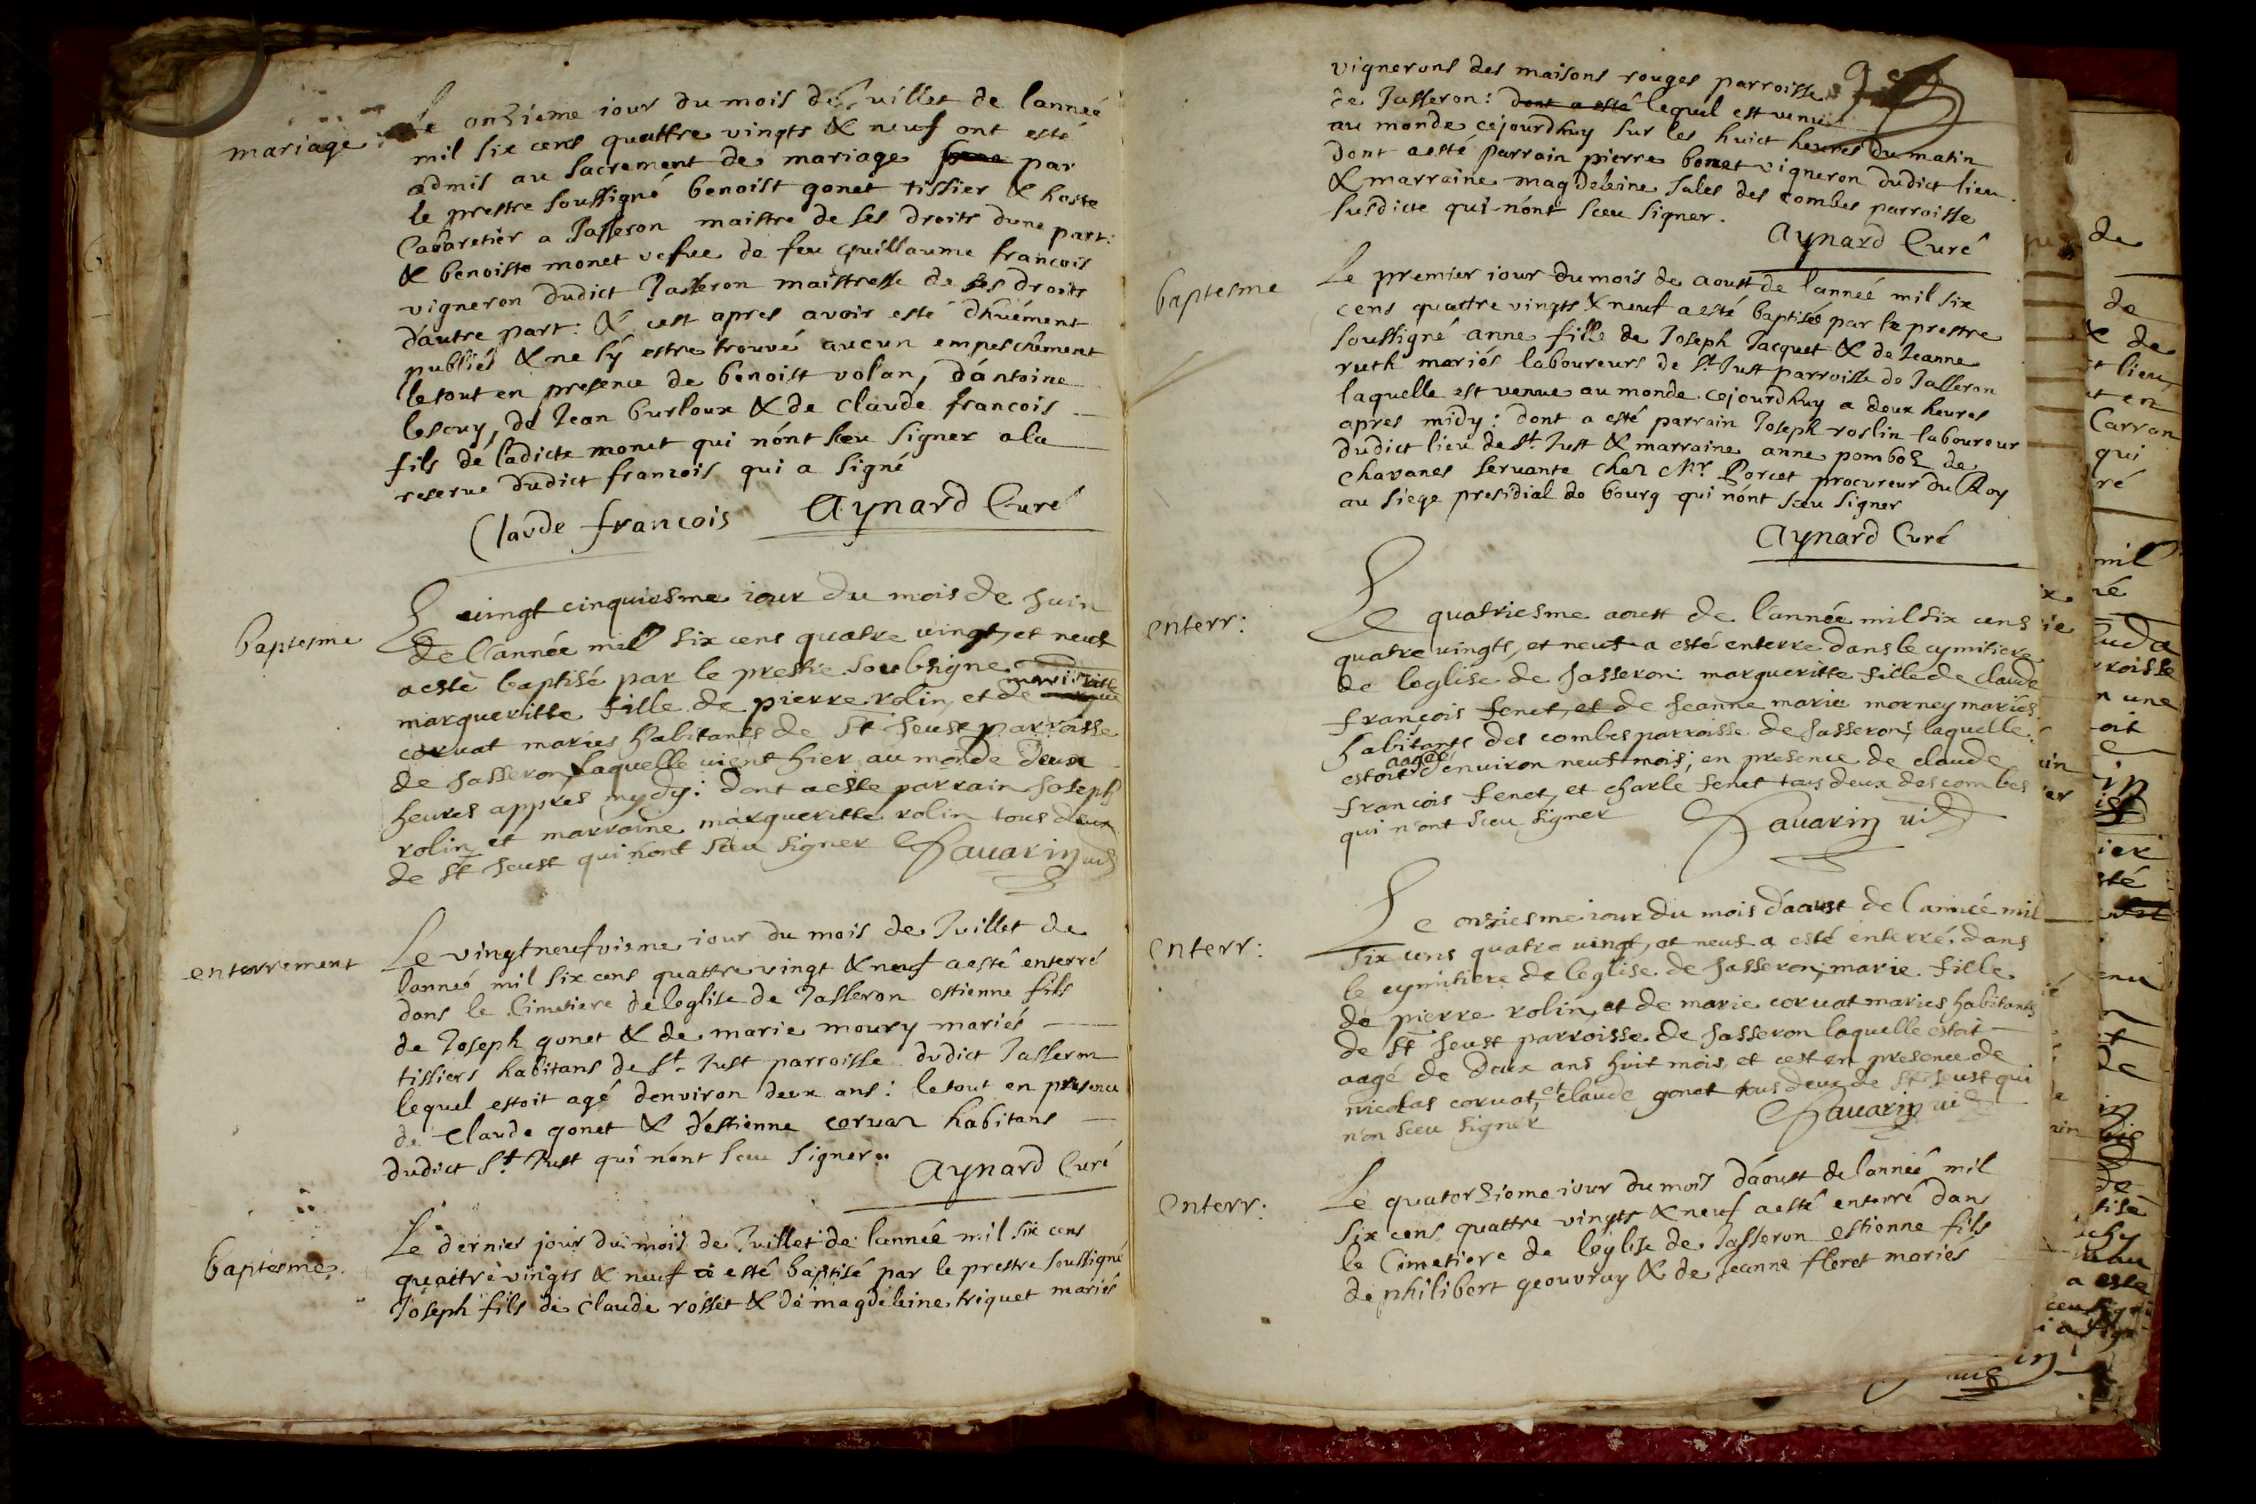 mariage
Le onzieme iour du mois de Juillet de lanneé
mil six cens quattre vingts & neuf ont esté
admis au sacrement de mariage par
le prestre soussigné benoist gonet tissier & hoste
Cabaretier a Jasseron maistre de ses droits dune part:
& benoiste monet vefue de feu guillaume francois
vigneron dudict Jasseron maistresse de ses droits
dáutre part: & cest apres avoir esté dhuëment
publiés & ne sÿ estre trouvé aucun empeschement
le tout en presence de benoist volan, dántoine
lescuy, de Jean burloux & de claude francois
fils de ladicte monet qui nónt sceu signer a la
reserue dudict francois qui a signé
Claude francois Aynard Curé
baptesme
Le uingt cinquiesme iour du mois de Juin
de l'année mil six cens quatre uingt, et neuf
a esté baptisé par le prestre soubsigne
margueritte fille de pierre rolin, et de marie
coruat mariés habitants de St Jeust parroisse
de Jasseron, laquelle uient hier au monde deux
heures apprés mydy: dont a esté parrain Joseph
rolin et marraine margueritte rolin tous deux
de St Jeust qui nónt sceu signer Fauarin uic
enterrement
Le vingt neufvieme iour du mois de Juillet de
lanneé mil six cens quattre vingt & neuf a esté enterré
dans le Cimetiere de leglise de Jasseron estienne fils
de Joseph gonet & de marie moury mariés
tissiers habitans de St Just parroisse dudict Jasseron
lequel estoit agé denviron deux ans: le tout en presence
de Claude gonet & déstienne corvaz habitans
dudict St Just qui nónt sceu signer.
Aynard Curé
baptesme
Le dernier jour du mois de Juillet de lanneé mil six cens
quattre vingts & neuf a esté baptisé par le prestre soussigné
Joseph fils de claude rosset & de magdeleine triquet mariés
vignerons des maisons rouges parroisse
de Jasseron: dont a esté lequel est venu
au monde cejourdhuy sur les huict heures du matin
dont a esté parrain pierre bonet vigneron dudict lieu
& marraine magdeleine sales des combes parroisse
susdicte qui nónt sceu signer.
Aynard Curé
baptesme
Le premier iour du mois de aoust de lanneé mil six
cens quattre vingts & neuf a esté baptiseé par le prestre
soussigné anne fille de Joseph Jacquet & de Jeanne
ruth mariés laboureurs de St Just parroisse de Jasseron
laquelle est venue au monde cejourdhuy a deux heures
apres midy: dont a esté parrain Joseph roslin laboureur
dudict lieu de St Just & marraine anne pomboz de
Chavanes servante chez Mr Porcet procureur du Roy
au siege presidial de bourg qui nónt sceu signer
Aynard Curé
enterr:
Le quatriesme aoust de l'année mil six cens
quatre uingts, et neuf a esté enterre dans le cymitiere
de leglise de Jasseron margueritte fille de claude
françois fenet, et de Jeanne marie morney mariés
habitants des combes parroisse de Jasseron, laquelle
estoit aagé dénuiron neuf mois, en presence de claude
françois fenet, et charle fenet tous deux des combes
qui nónt sceu signer Fauarin uic
enterr:
Le onziesme iour du mois dáoust de l'année mil
six cens quatre uingt, et neuf a esté enterré dans
le cymitiere de leglise de Jasseron, marie fille
de pierre rolin, et de marie coruat mariés habitants
de St Jeust parroisse de Jasseron laquelle estoit
aagé de deux ans huit mois, et cest en presence de
nicolas coruat, et claude gonet tous deux de St Jeust qui
nón sceu signer Fauarin uic
enterr:
Le quatorzieme iour du mois dáoust de lanneé mil
six cens quattre vingts & neuf a esté enterré dans
le Cimetiere de léglise de Jasseron estienne fils
de philibert geouvray & de Jeanne floret mariés